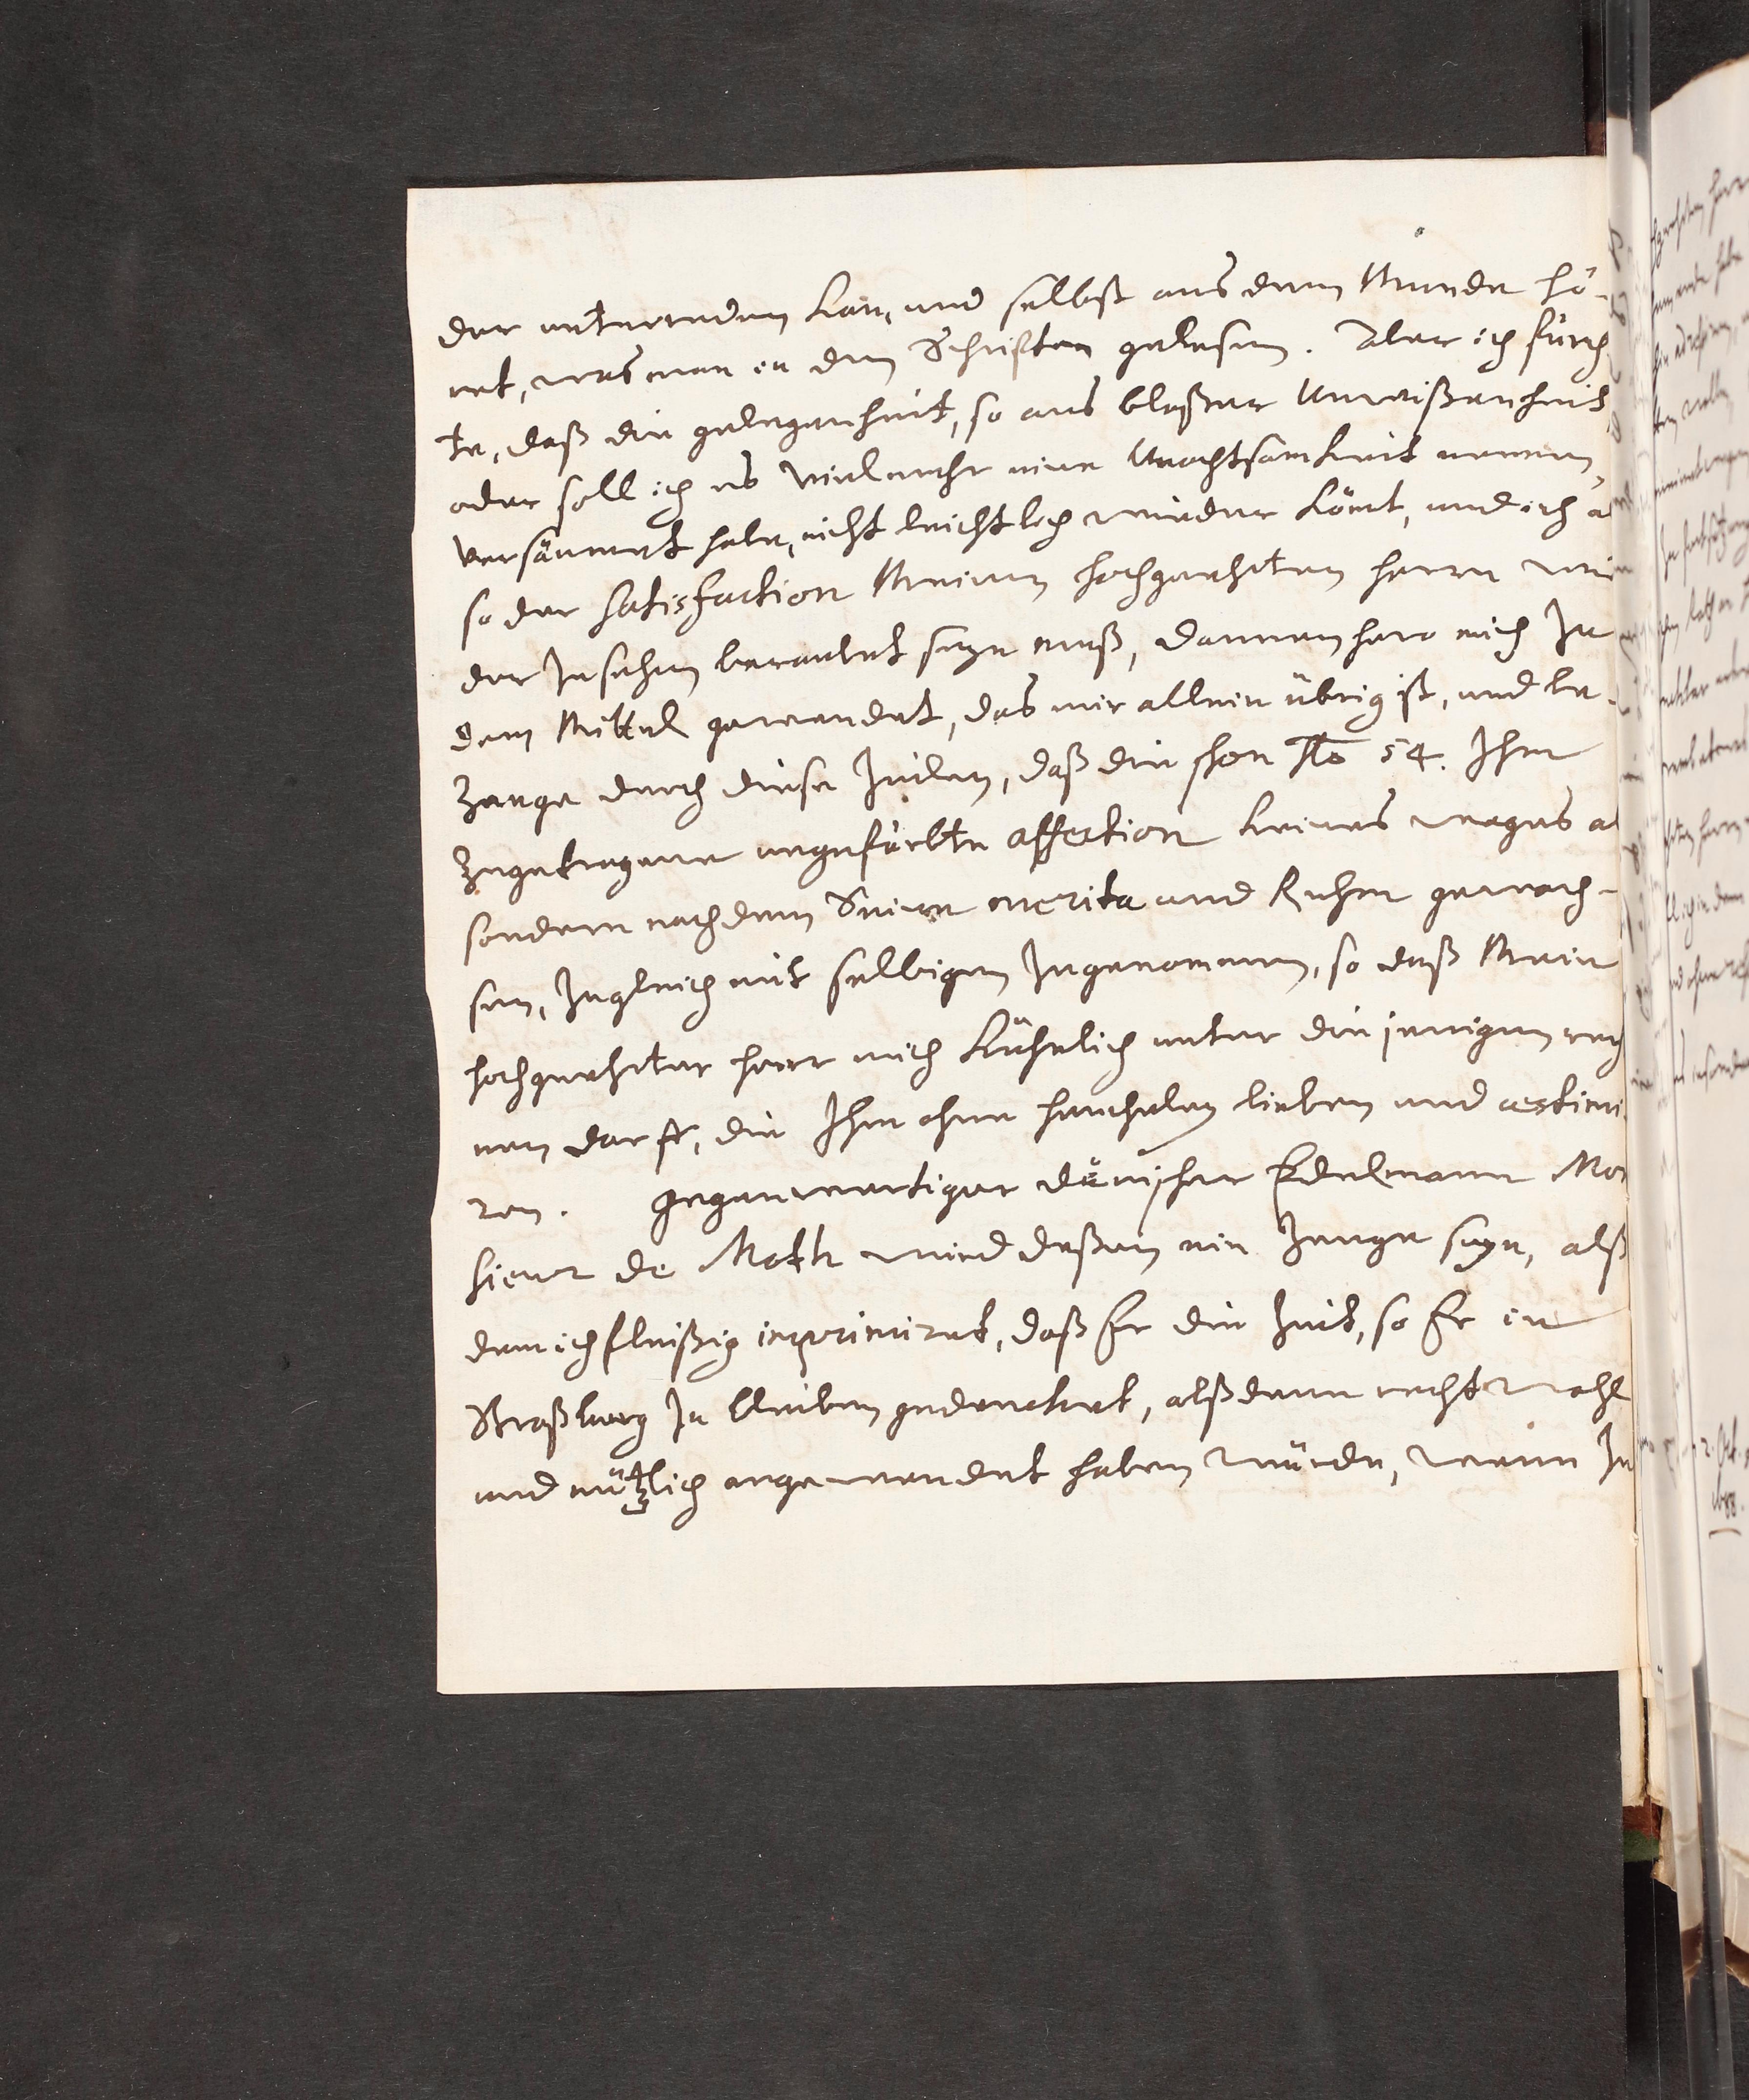 der unterreden kan, und selbst aus dem Munde hö-
ret, was man in den Schrifften gelesen. Aber ich fürch
te, daß die gelegenheit, so aus bloßer Unwißenheit
oder soll ich es vielmehr eine Unachtsamkeit nennen,
versäumet habe, nicht leichtlich wieder kömt, und ich al
so der satisfaction Meinen hochgeehrten herrn wie
der zu sehen beraubet seyn muß, dannenhero mich zu
dem Mittel gewendet, das mir allein übrig ist, und be-
zeuge durch diese Zeilen, daß die schon Ao 54. Ihm
zugetragene ungefärbte affection keines weges al
sondern nachdem Seine merita und Ruhm gewach-
sen, zugleich mit selbigen zugenommen, so daß Mein
hochgeehrter herr mich kühnlich unter die jenigen rech
nen darff, die Ihm ohne heucheley lieben und aestimi
ren. Gegenwertiger dänischer Edelmann Mon
sieur de Moth wird deßen ein Zeuge seyn, alß
dem ich fleißig imprimiret, daß Er die Zeit, so Er in
Straßburg zu bleiben gedencket, alßdann recht wohl
und nützlich angewendet haben würde, wenn Zu